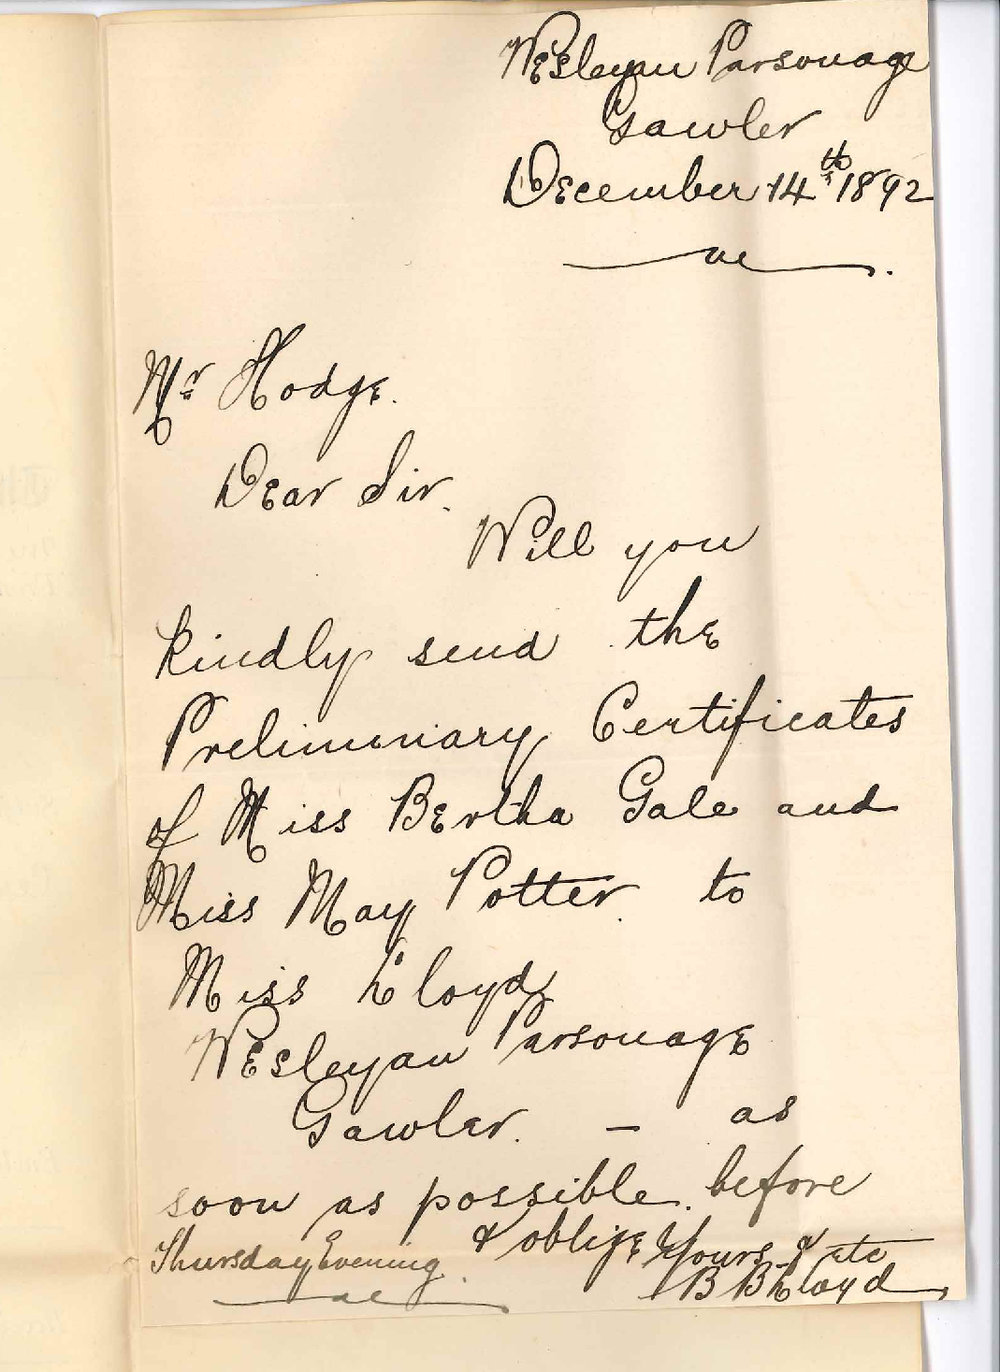 Wesleyan Parsonage
Gawler
December 14th 1892
Mr Hodge.
Dear Sir.
Will you
kindly send the
Preliminary Certificates
of Miss Bertha Gale and
Miss May Potter to
Miss Lloyd
Wesleyan Parsonage
Gawler. — as
soon as possible before
Thursday Evening. & oblige Yours & etc
B B Lloyd